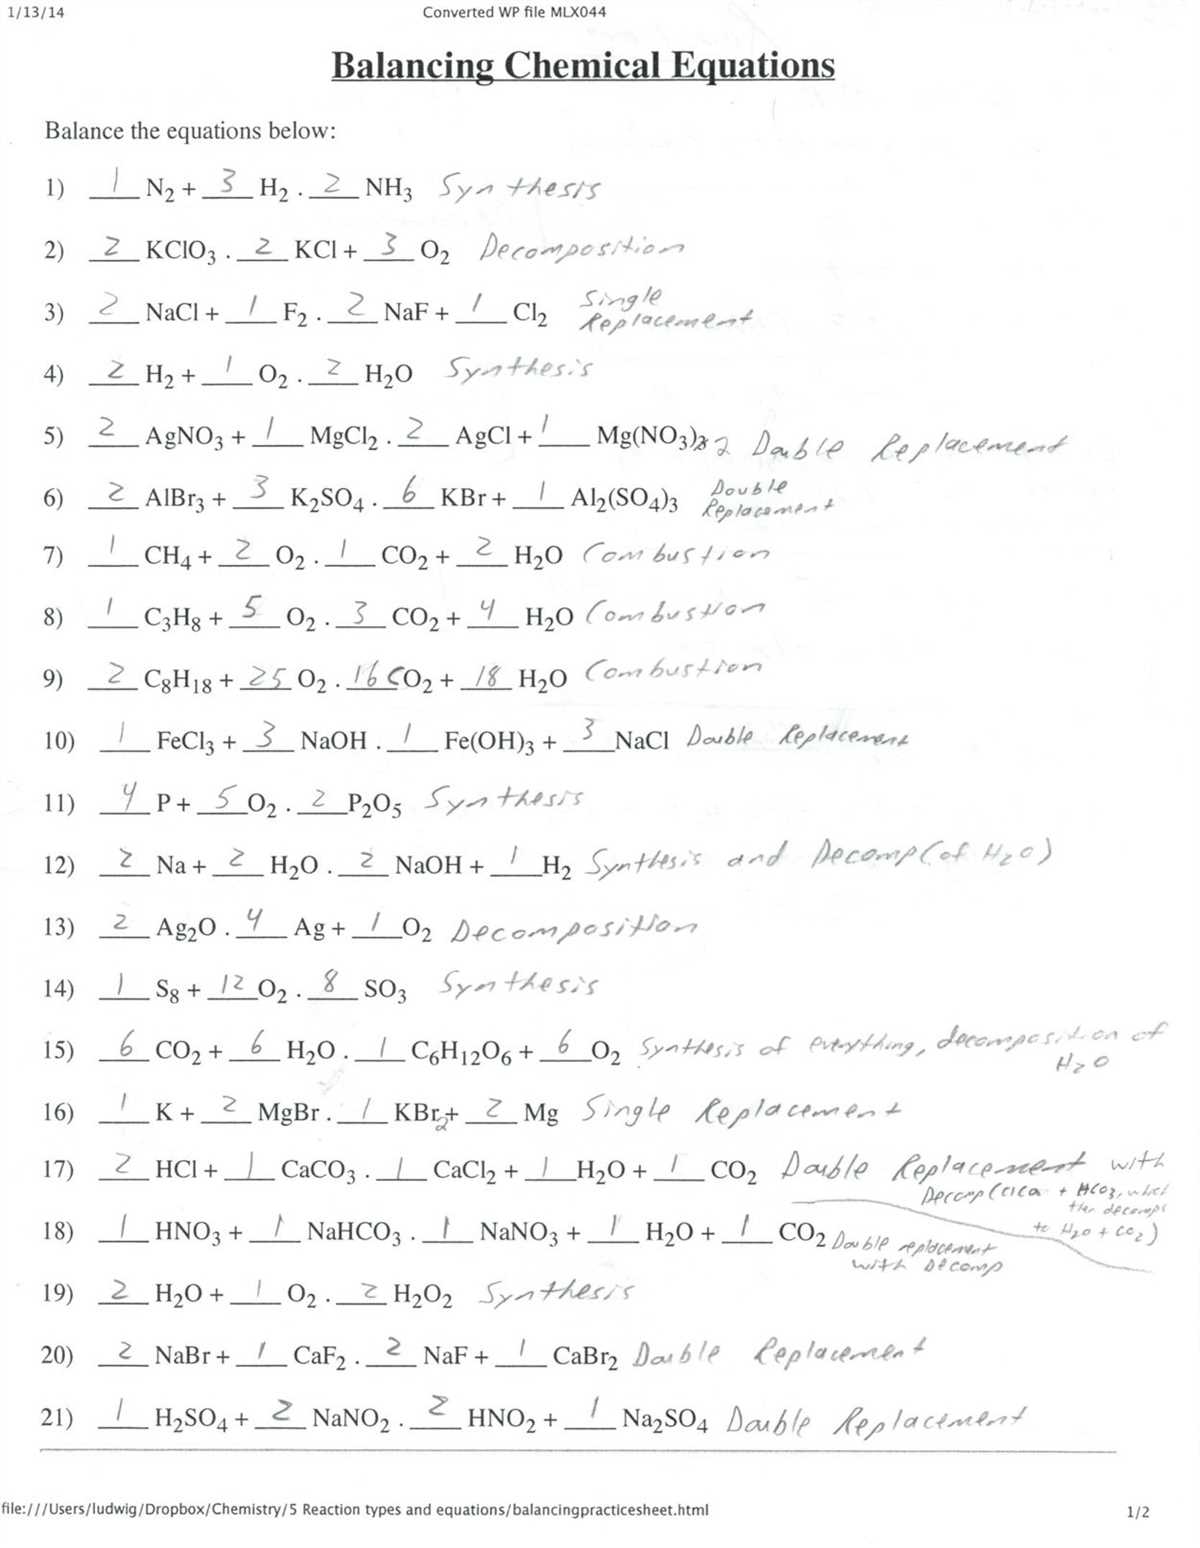 1/13/14 Converted WP file MLX044
Balancing Chemical Equations
Balance the equations below:
1) 1 N2 + 3 H2 . 2 NH3 Synthesis
2) 2 KClO3 . 2 KCl + 3 O2 Decomposition
3) 2 NaCl + 1 F2 . 2 NaF + 1 Cl2 Single
Replacement
4) 2 H2 + 1 O2 . 2 H2O Synthesis
5) 2 AgNO3 + 1 MgCl2 . 2 AgCl + 1 Mg(NO3)2 Double Replacement
6) 2 AlBr3 + 3 K2SO4 . 6 KBr + 1 Al2(SO4)3 Double
Replacement
7) 1 CH4 + 2 O2 . 1 CO2 + 2 H2O Combustion
8) 1 C3H8 + 5 O2 . 3 CO2 + 4 H2O Combustion
9) 2 C8H18 + 25 O2 . 16 CO2 + 18 H2O Combustion
10) 1 FeCl3 + 3 NaOH . 1 Fe(OH)3 + 3 NaCl Double Replacement
11) 4 P + 5 O2 . 2 P2O5 Synthesis
12) 2 Na + 2 H2O . 2 NaOH + 1 H2 Synthesis and Decomp(of H2O)
13) 2 Ag2O . 4 Ag + 1 O2 Decomposition
14) 1 S8 + 12 O2 . 8 SO3 Synthesis
15) 6 CO2 + 6 H2O . 1 C6H12O6 + 6 O2 Synthesis of everything, decomposition of
H2O
16) 1 K + 2 MgBr . 1 KBr2 + 2 Mg Single Replacement
17) 2 HCl + 1 CaCO3 . 1 CaCl2 + 1 H2O + 1 CO2 Double Replacement with
Decomp ( + HCO3, which
then decomps
to H2O + CO2)
18) 1 HNO3 + 1 NaHCO3 . 1 NaNO3 + 1 H2O + 1 CO2 Double replacement
with Decomp
19) 2 H2O + 1 O2 . 2 H2O2 Synthesis
20) 2 NaBr + 1 CaF2 . 2 NaF + 1 CaBr2 Double Replacement
21) 1 H2SO4 + 2 NaNO2 . 2 HNO2 + 1 Na2SO4 Double Replacement
file:///Users/ludwig/Dropbox/Chemistry/5 Reaction types and equations/balancingpracticesheet.html 1/2